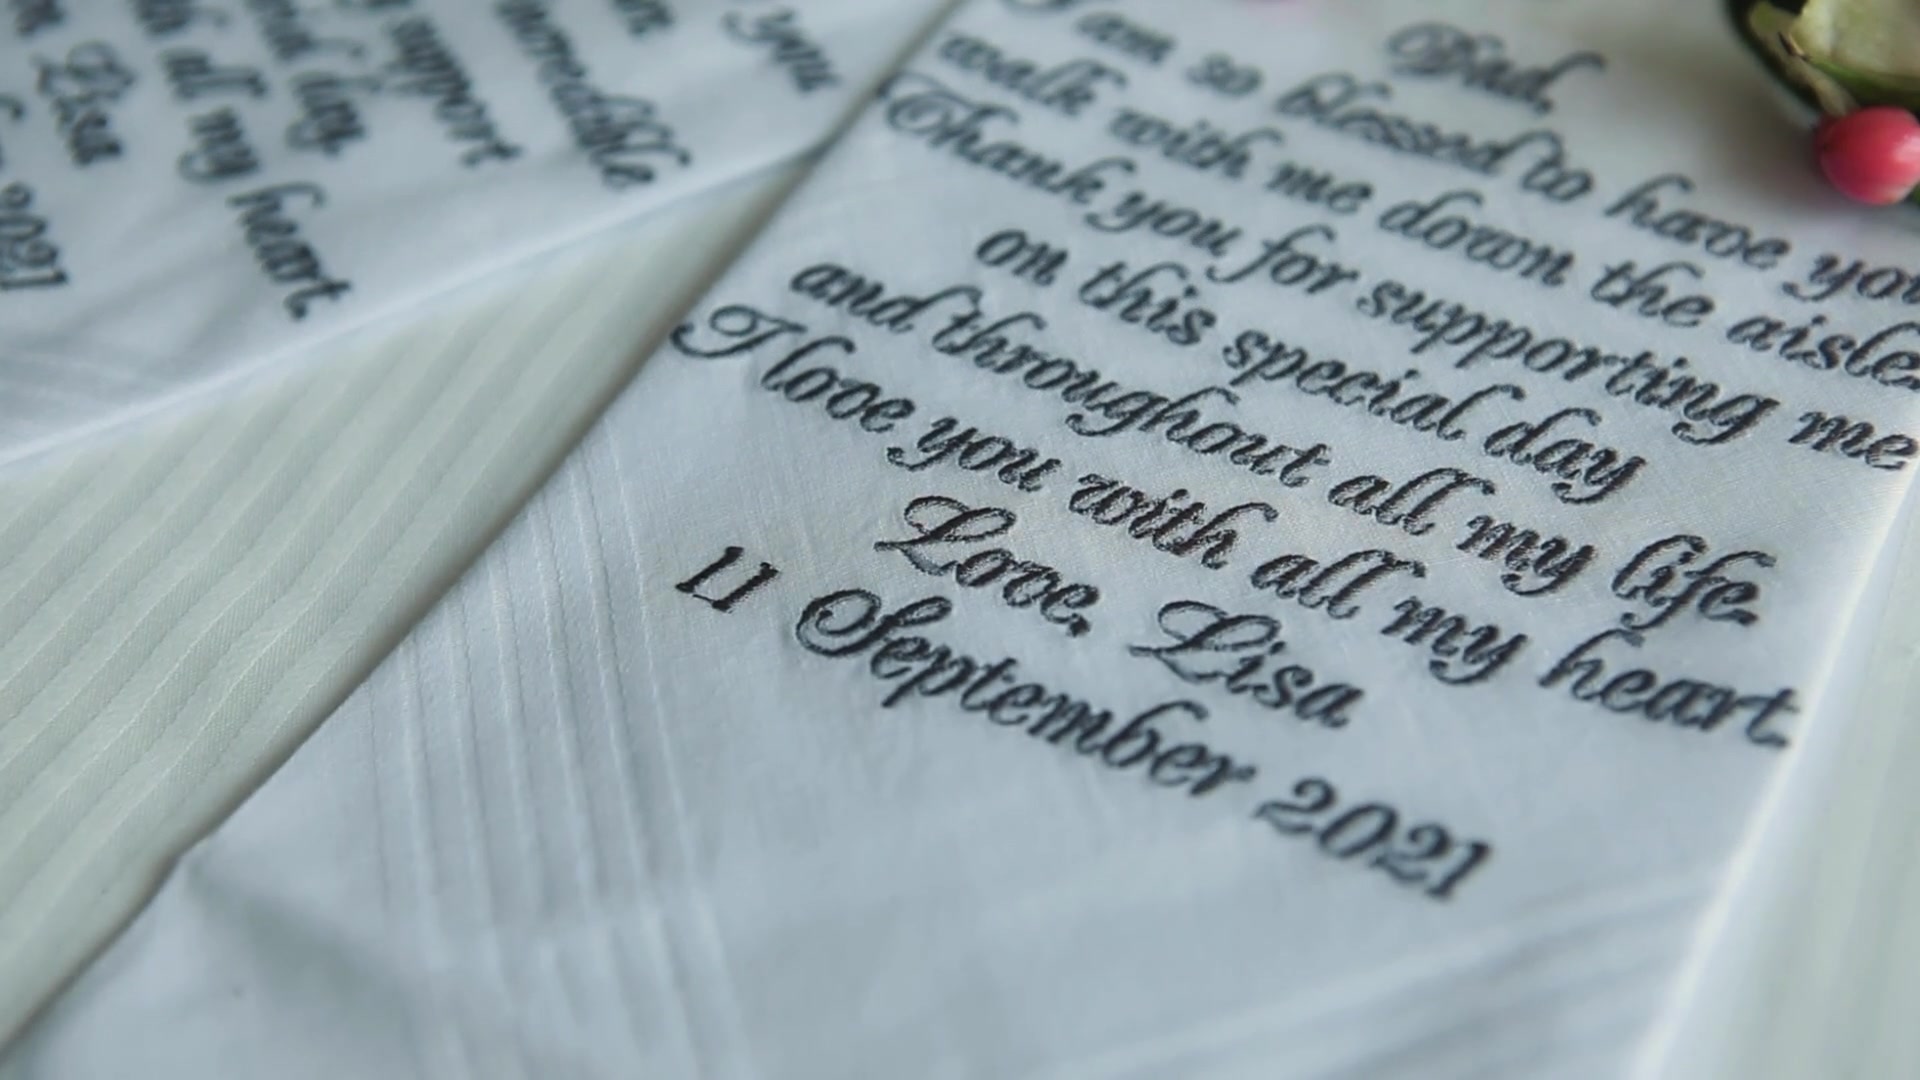 Dad,
I am so blessed to have you
walk with me down the aisle.
Thank you for supporting me
on this special day
and throughout all my life.
I love you with all my heart.
Love, Lisa
11 September 2021
you
incredible
support
day.
with all my heart.
Lisa
2021